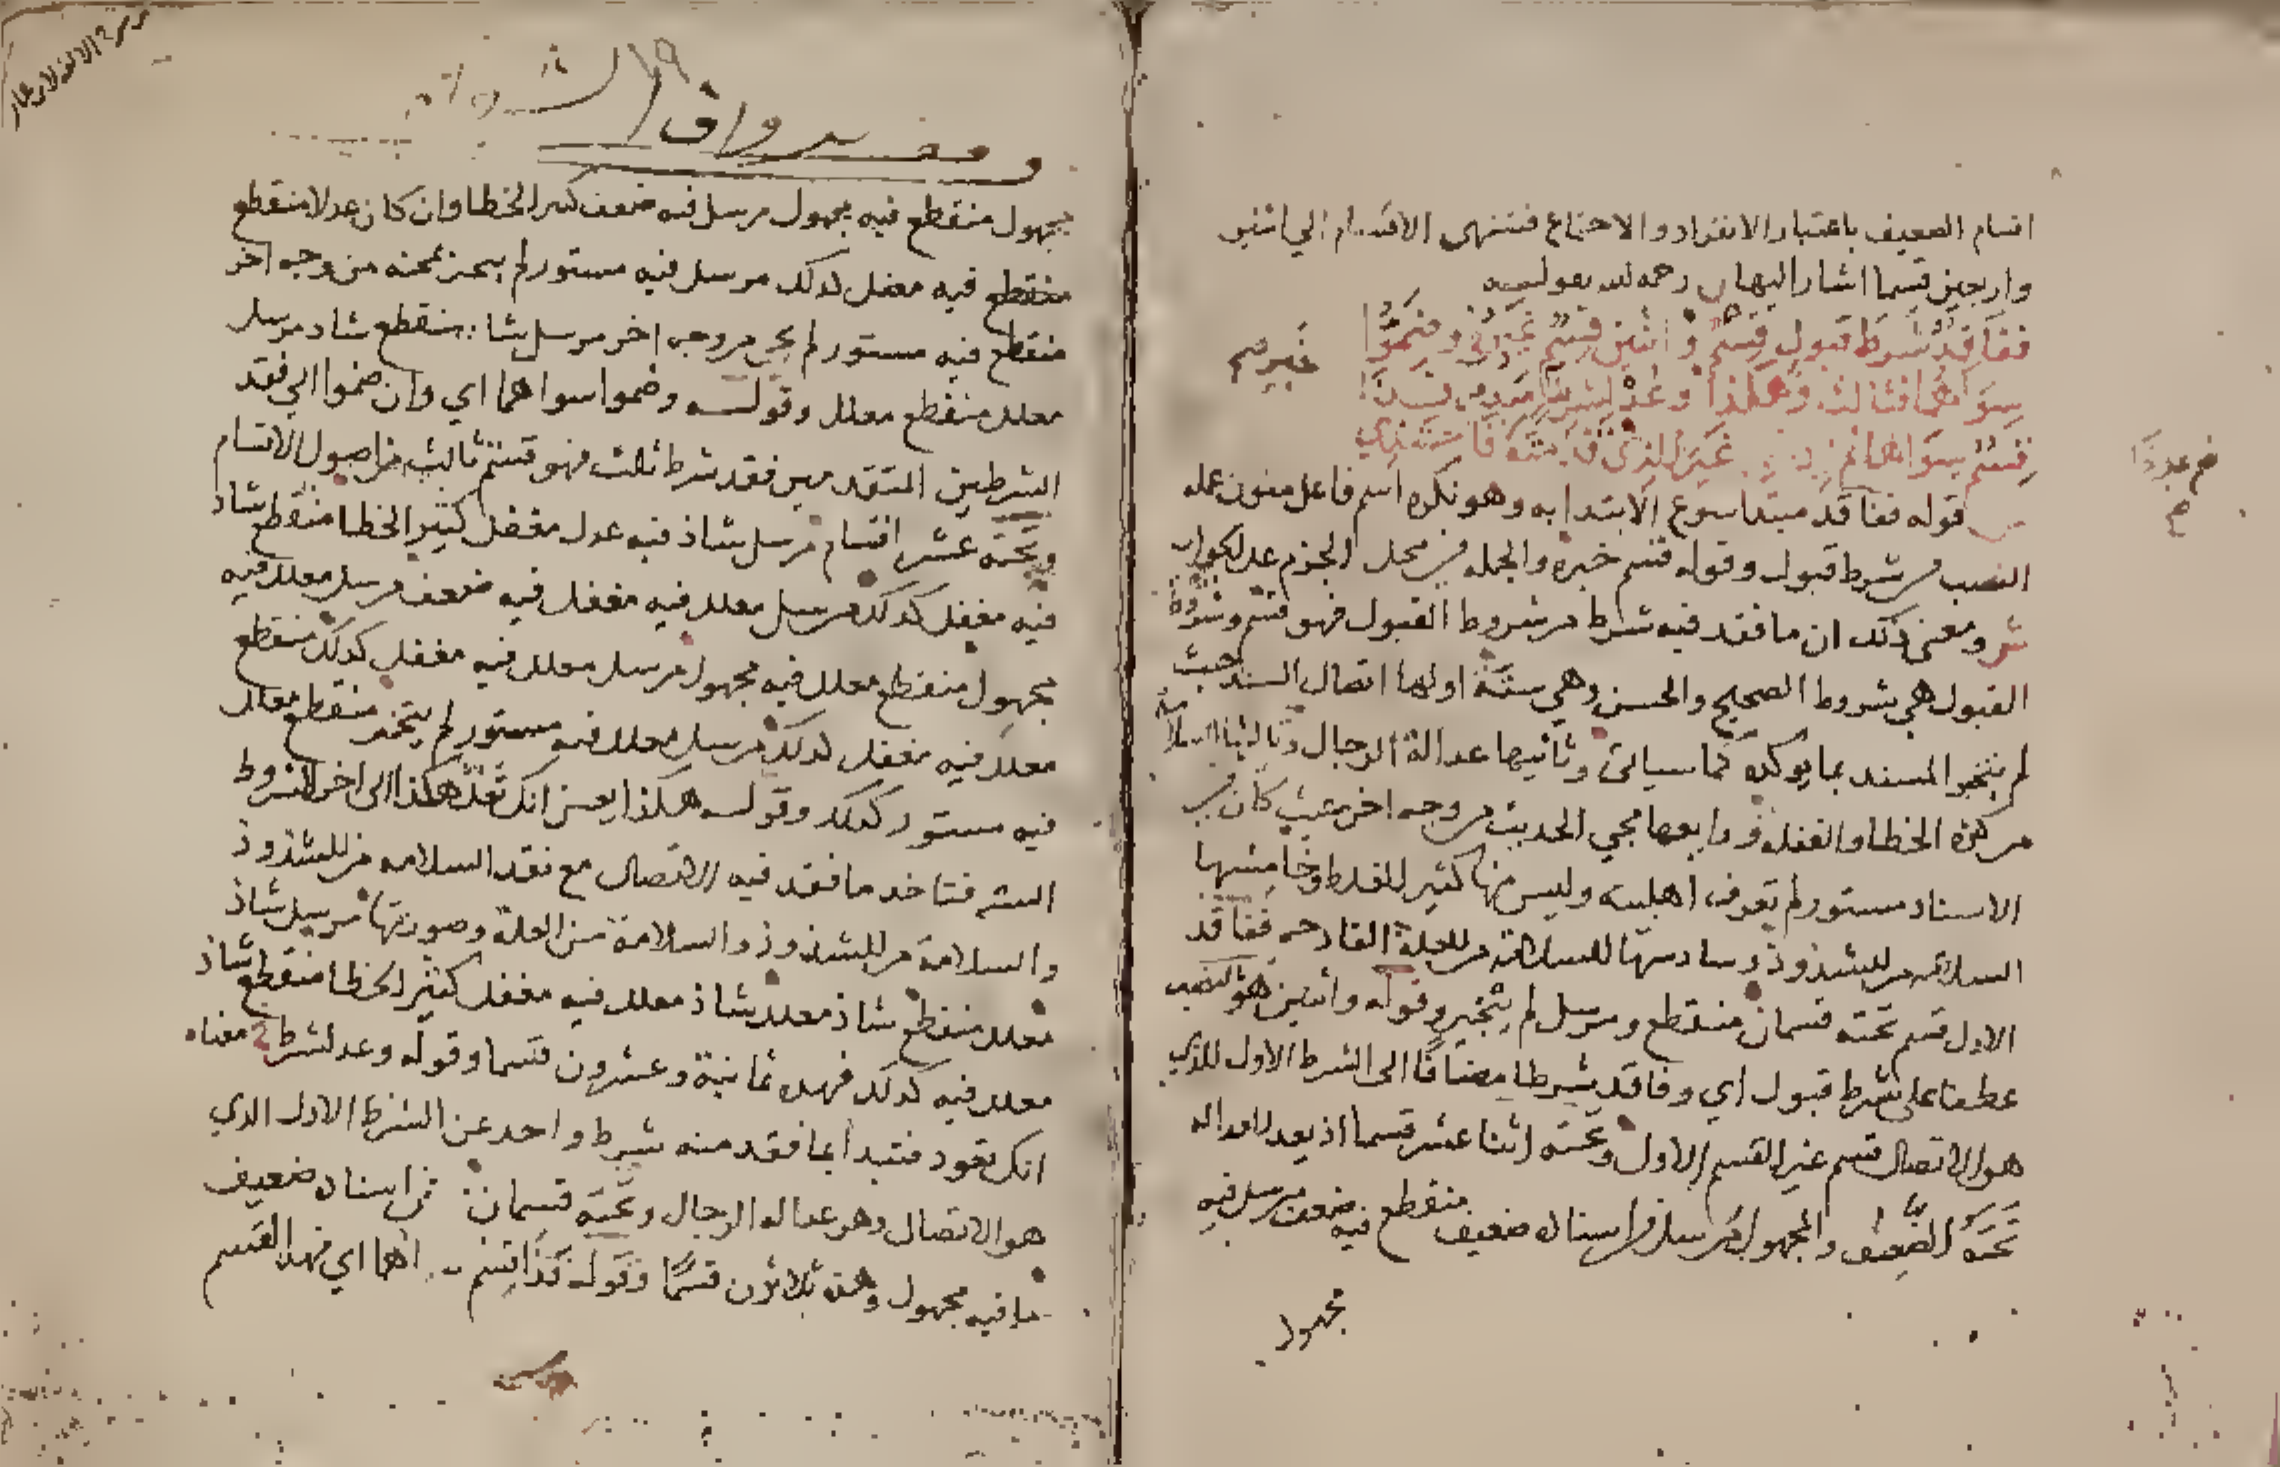 اقسام الضعيف باعتبار الانفراد والاجتماع فتنتهي الاقسام الي اثنين
واربعين قسما اشار اليها رحمه الله بقوله
ففاقد شرط قبول قسم واثنين قسم غيره وضموا
سواهما فثالث وهكذا وعد لشرط غير مبدو فذا
قسم سواها ثم زد غير الذي قدمته
قوله ففاقد مبتدا سوغ الابتدا به وهو نكره اسم فاعل عمله
النصب في شرط قبول وقوله قسم خبره والجمله في محل الجزم
ش ومعنى ذلك ان ما فقد فيه شرط من شروط القبول فهو قسم وشروط
القبول هي شروط الصحيح والحسن وهي ستة اولها اتصال السند حيث
لم ينجبر المسند بما يوكده كما سياتي وثانيها عدالة الرجال وثالثها السلامة
من كثرة الخطا والغفلة ورابعها مجي الحديث من وجه اخر حيث كان في
الاسناد مستور لم تعرف اهليته وليس متهما كثير الغلط وخامسها
السلامة من الشذوذ وسادسها السلامة من العلة القادحه ففاقد
الاول قسم تحته قسمان منقطع ومرسل لم ينجبر وقوله واثنين هو بالنصب
عطفا على شرط قبول اي وفاقد شرطا مضافا الى الشرط الاول الذي
هو الاتصال قسم غير القسم الاول وتحته اثنا عشر قسما اذ يعد لعدالة
تحته الضعيف والمجهول مرسل في اسناده ضعيف منقطع فيه ضعيف مرسل فيه
مجهول
غير
مجهول منقطع فيه مجهول مرسل فيه مغفل كثير الخطا وان كان عدلا منقطع
منقطع فيه مغفل كذلك مرسل فيه مستور لم ينجبر بمجيئه من وجه اخر
منقطع فيه مستور لم يجي من وجه اخر مرسل شاذ منقطع شاذ مرسل
معلل منقطع معلل وقوله وضموا سواهما اي وان ضموا الي فقد
الشرطين المتقدمين فقد شرط ثالث فهو قسم ثالث من اصول الاقسام
وتحته عشر اقسام مرسل شاذ فيه عدل مغفل كثير الخطا منقطع شاذ
فيه مغفل كذلك مرسل معلل فيه ضعف مرسل معلل فيه
مجهول منقطع معلل فيه مجهول مرسل معلل فيه مغفل كذلك منقطع
معلل فيه مغفل كذلك مرسل معلل فيه مستور لم ينجبر منقطع معلل
فيه مستور كذلك وقوله هكذا يعني انك تعد هكذا الى اخر الشروط
الستة فتاخذ ما فقد فيه الاتصال مع فقد السلامه من الشذوذ
والسلامة من الشذوذ والسلامة من العلة وصورتها مرسل شاذ
معلل منقطع شاذ معلل شاذ معلل فيه مغفل كثير الخطا منقطع شاذ
معلل فيه كذلك فهذه ثمانية وعشرون قسما وقوله وعد لشرط معناه
انك تعود فتبدا بما فقد منه شرط واحد عن الشرط الاول الذي
هو الاتصال وهو عدالة الرجال وتحته قسمان في اسناده ضعيف
ما فيه مجهول وهذه ثلاثون قسما وقوله فذا قسم سواها اي فهذا القسم